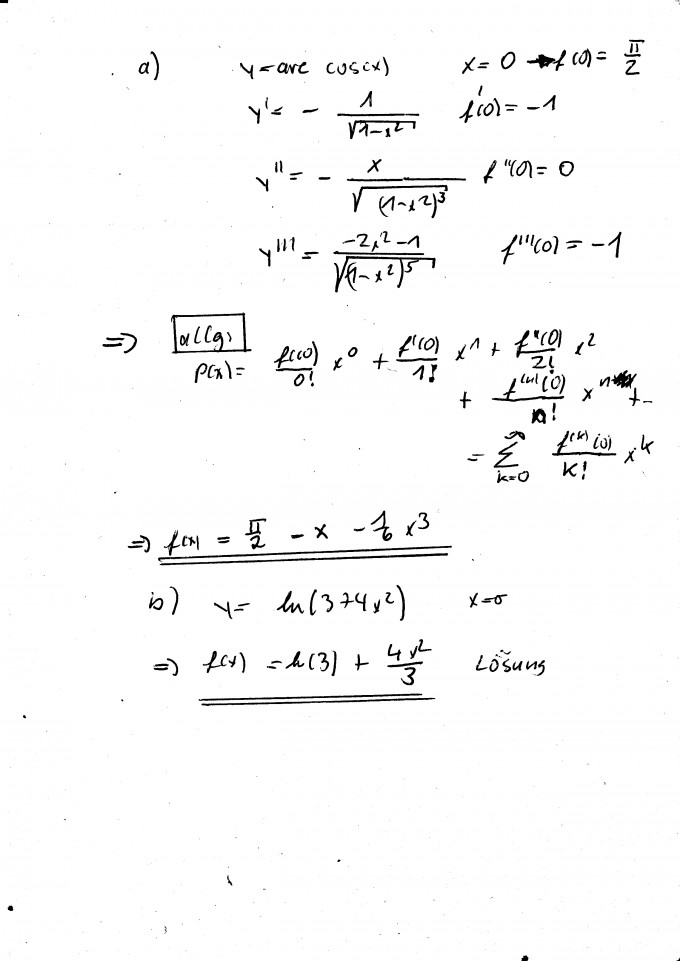 a) y = arc cos(x) x = 0 → f(0) = π/2
y' = - 1/√(1-x²) f'(0) = -1
y'' = - x/√((1-x²)³) f''(0) = 0
y''' = (-2x²-1)/√((1-x²)⁵) f'''(0) = -1
⇒ allg.
P(x) = f(0)/0! x⁰ + f'(0)/1! x¹ + f''(0)/2! x²
+ f⁽ⁿ⁾(0)/n! xⁿ + ...
= ∑_{k=0}^{∞} f⁽ᵏ⁾(0)/k! xᵏ
⇒ f(x) = π/2 - x - 1/6 x³
b) y = ln(3+4x²) x=0
⇒ f(x) = ln(3) + 4x²/3 Lösung